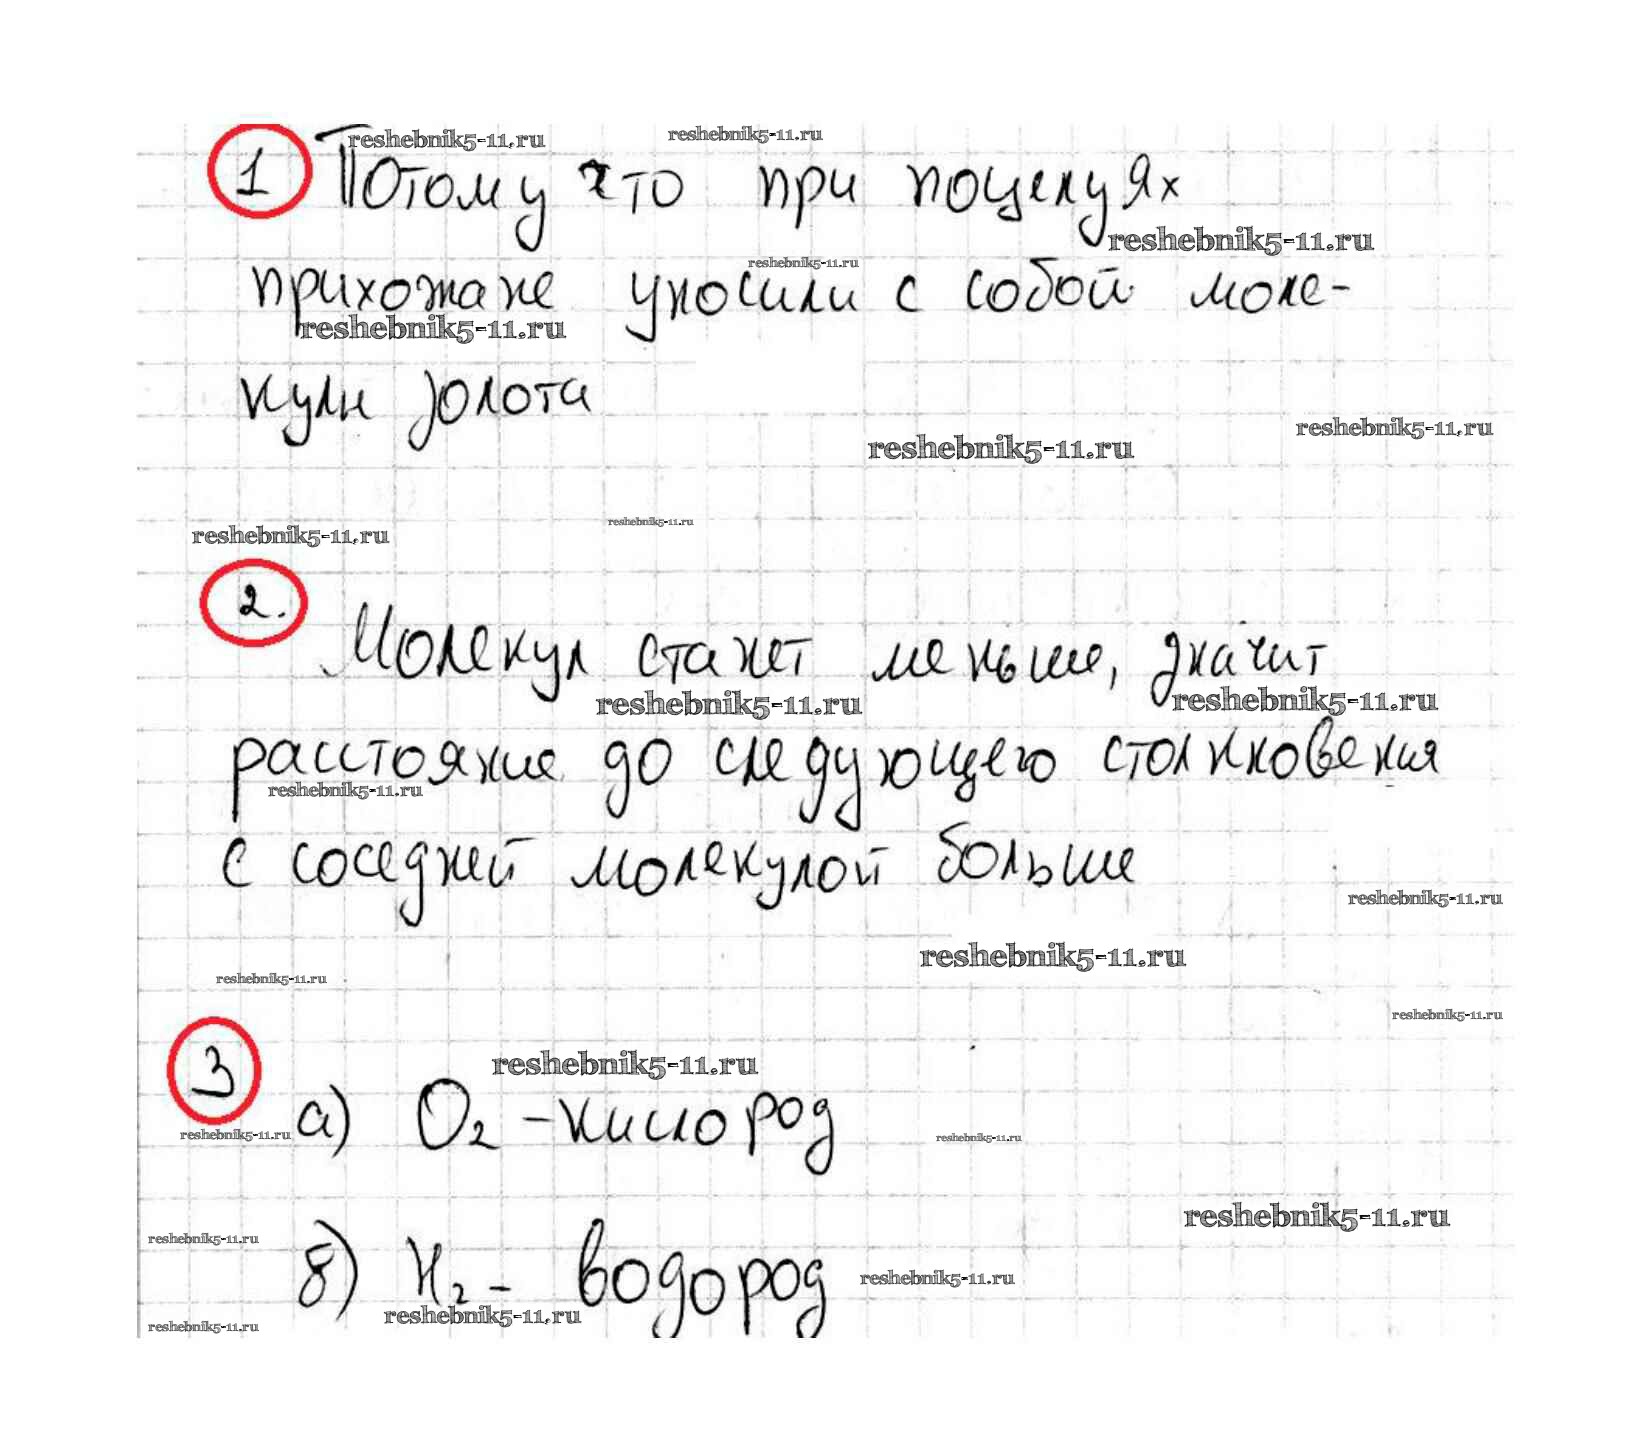 reshebnik5-11.ru reshebnik5-11.ru
1 Потому что при поцелуях
reshebnik5-11.ru
reshebnik5-11.ru
прихожане уносили с собой моле-
reshebnik5-11.ru
кулы золота
reshebnik5-11.ru
reshebnik5-11.ru
reshebnik5-11.ru
reshebnik5-11.ru
2. Молекул станет меньше, значит
reshebnik5-11.ru reshebnik5-11.ru
расстояние до следующего столкновения
reshebnik5-11.ru
с соседней молекулой больше
reshebnik5-11.ru
reshebnik5-11.ru
reshebnik5-11.ru
reshebnik5-11.ru
3 reshebnik5-11.ru
а) O₂ – кислород
reshebnik5-11.ru reshebnik5-11.ru
reshebnik5-11.ru
reshebnik5-11.ru
б) H₂ – водород
reshebnik5-11.ru
reshebnik5-11.ru
reshebnik5-11.ru